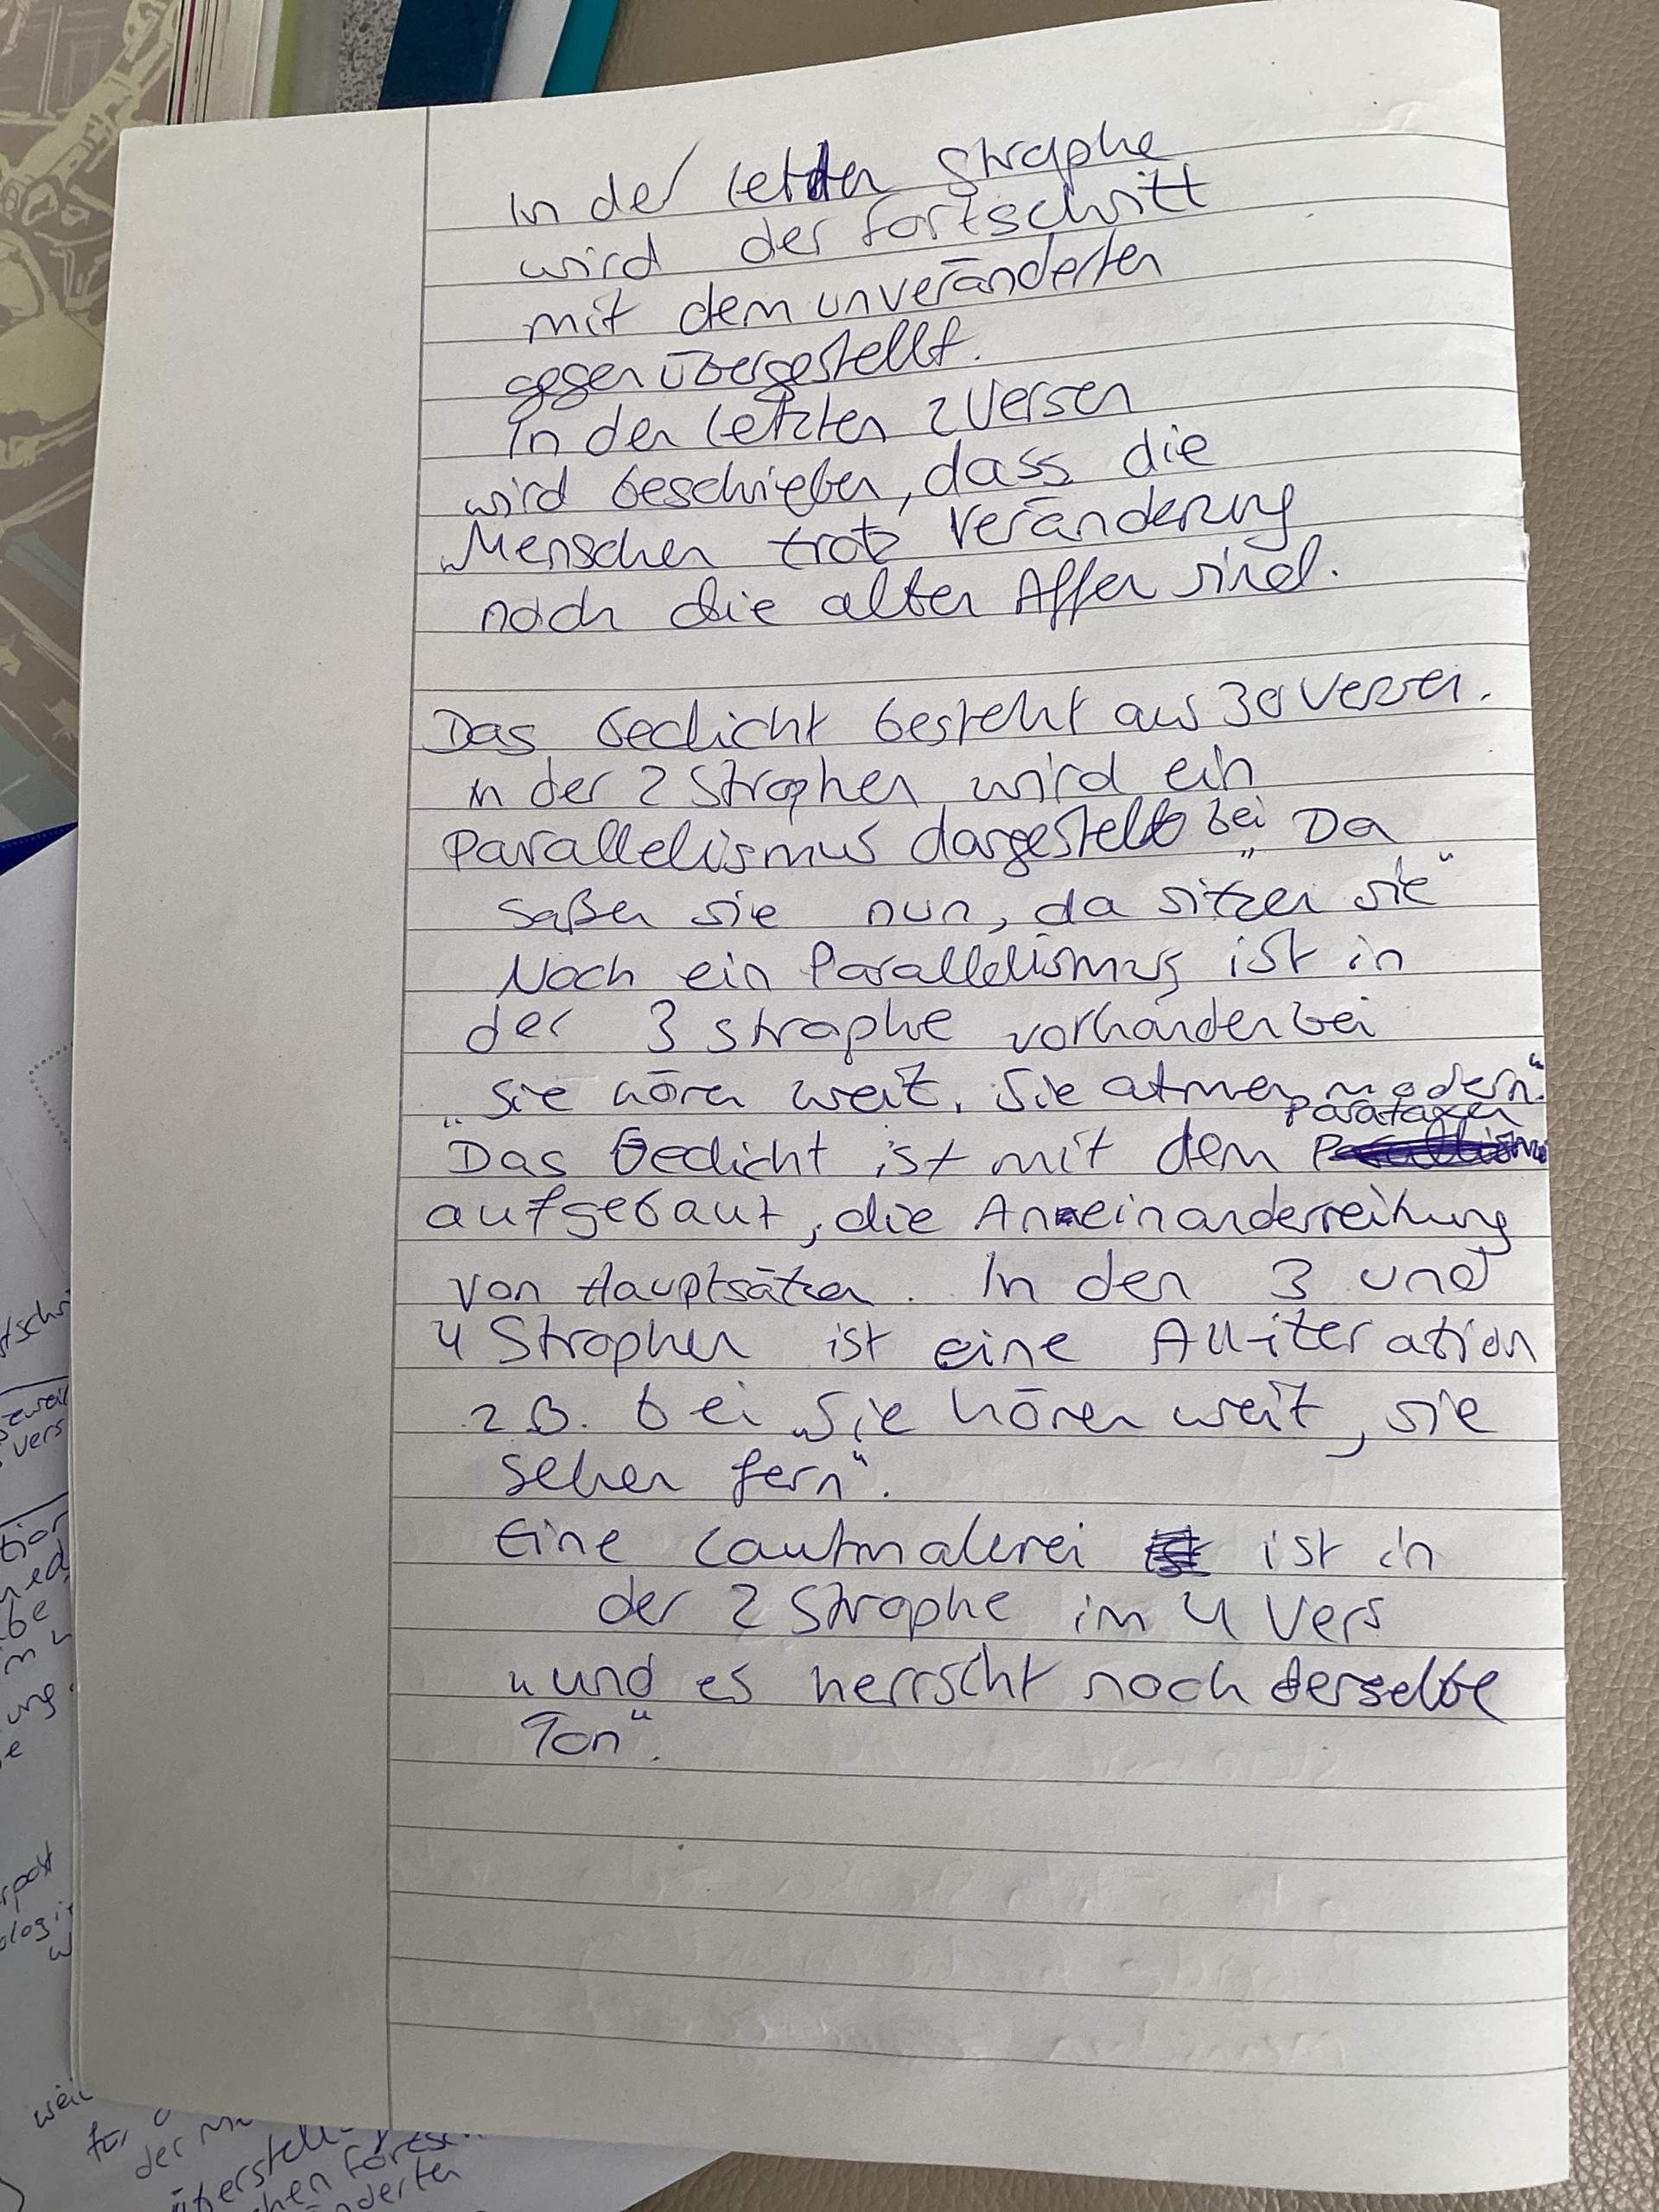 In der letzten Strophe
wird der Fortschritt
mit dem unveränderten
gegenübergestellt.
In den letzten 2 Versen
wird beschrieben, dass die
Menschen trotz Veränderung
noch die alten Affen sind.
Das Gedicht besteht aus 30 Versen.
In der 2 Strophen wird ein
Parallelismus dargestellt bei „Da
saßen sie nun, da sitzen sie"
Noch ein Parallelismus ist in
der 3 Strophe vorhanden bei
„Sie hören weit. Sie atmen modern."
Parataxen
Das Gedicht ist mit dem
aufgebaut, die Anneinanderreihung
von Hauptsätzen. In den 3 und
4 Strophen ist eine Alliteration
z.B. bei „Sie hören weit, sie
sehen fern".
Eine Lautmalerei ist in
der 2 Strophe im 4 Vers
„und es herrscht noch derselbe
Ton".